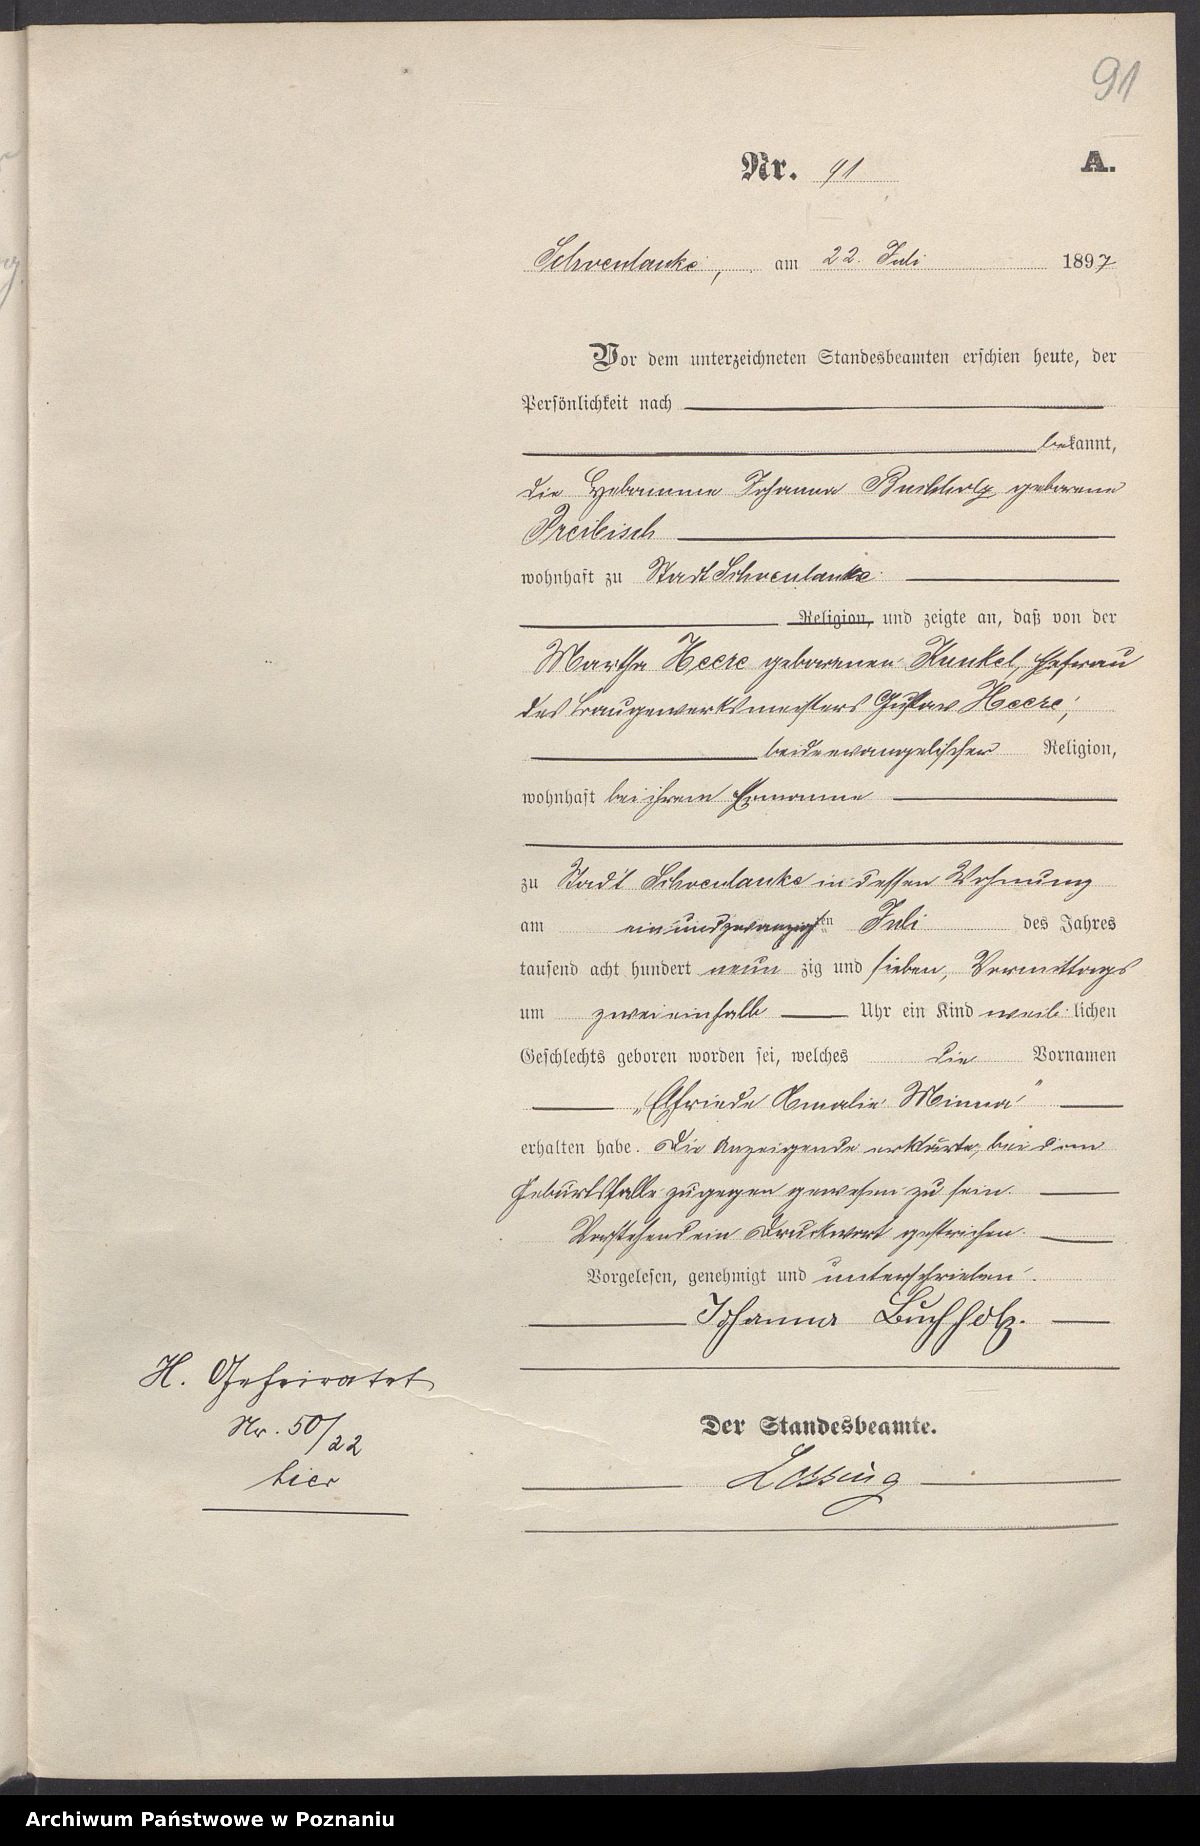 91
Nr. 91
A.
Schoenlanke, am 22. Juli 1897
Vor dem unterzeichneten Standesbeamten erschien heute, der
Persönlichkeit nach
bekannt,
die Hebamme Johanna Buchholz geborene
Preibisch
wohnhaft zu Stadt Schoenlanke
Religion, und zeigte an, daß von der
Martha Heere geborenen Kunkel, Ehefrau
des Baugewerksmeisters Gustav Heere,
beide evangelischer Religion,
wohnhaft bei ihrem Ehemanne
zu Stadt Schoenlanke in dessen Wohnung
am einundzwanzigsten Juli des Jahres
tausend acht hundert neunzig und sieben, Vormittags
um zweieinhalb Uhr ein Kind weiblichen
Geschlechts geboren worden sei, welches die Vornamen
„Elfriede Amalie Minna"
erhalten habe. Die Anzeigende erklärte, bei dem
Geburtsfalle zugegen gewesen zu sein.
Vorstehend ein Druckwort gestrichen.
Vorgelesen, genehmigt und unterschrieben.
Johanna Buchholz.
H. Geheiratet
Nr. 50/22
hier
Der Standesbeamte.
Archiwum Państwowe w Poznaniu